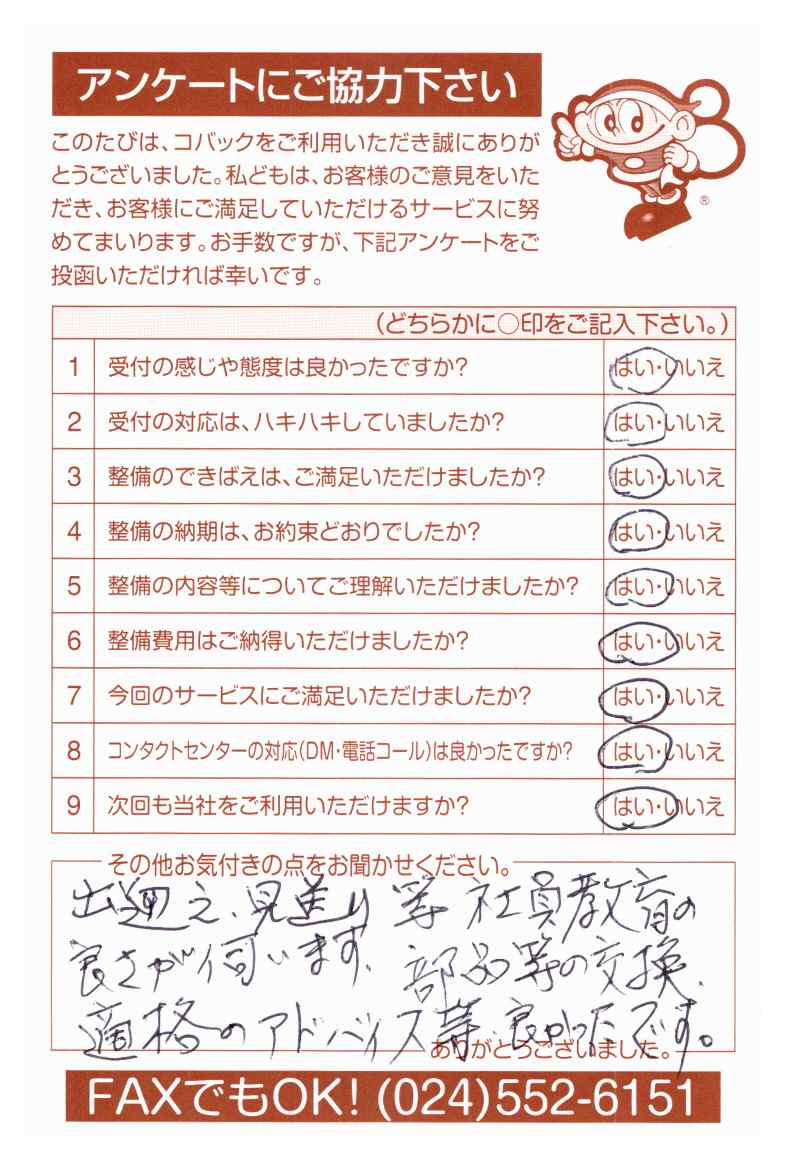 アンケートにご協力下さい
このたびは、コバックをご利用いただき誠にありが
とうございました。私どもは、お客様のご意見をいた
だき、お客様にご満足していただけるサービスに努
めてまいります。お手数ですが、下記アンケートをご
投函いただければ幸いです。
®
(どちらかに○印をご記入下さい。)
1 受付の感じや態度は良かったですか? はい・いいえ
2 受付の対応は、ハキハキしていましたか? はい・いいえ
3 整備のできばえは、ご満足いただけましたか? はい・いいえ
4 整備の納期は、お約束どおりでしたか? はい・いいえ
5 整備の内容等についてご理解いただけましたか? はい・いいえ
6 整備費用はご納得いただけましたか? はい・いいえ
7 今回のサービスにご満足いただけましたか? はい・いいえ
8 コンタクトセンターの対応(DM・電話コール)は良かったですか? はい・いいえ
9 次回も当社をご利用いただけますか? はい・いいえ
その他お気付きの点をお聞かせください。
出迎え、見送り等社員教育の
良さが伺います。部品等の交換、
適格のアドバイス等、良かったです。
ありがとうございました。
FAXでもOK! (024)552-6151